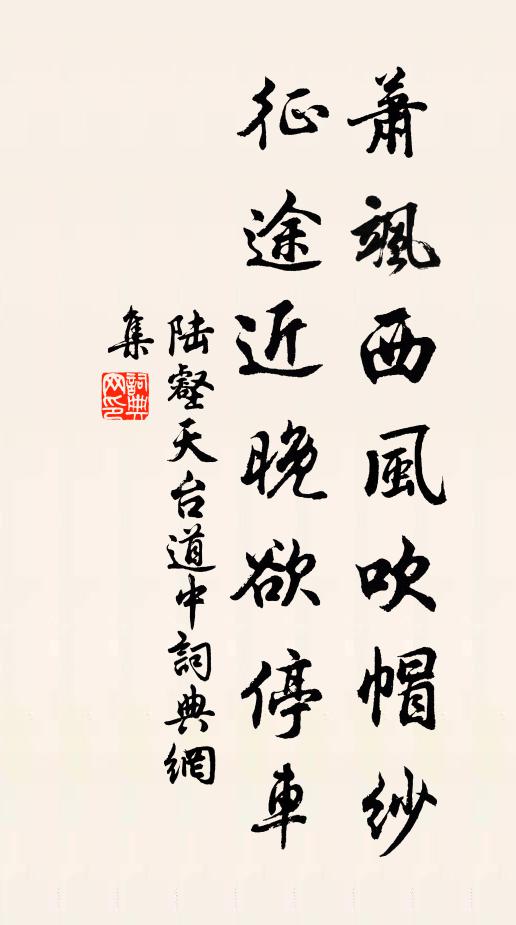 蕭颯西風吹帽紗
征途近晚欲停車
陸壑天台道中詞典網
集
詞典網印